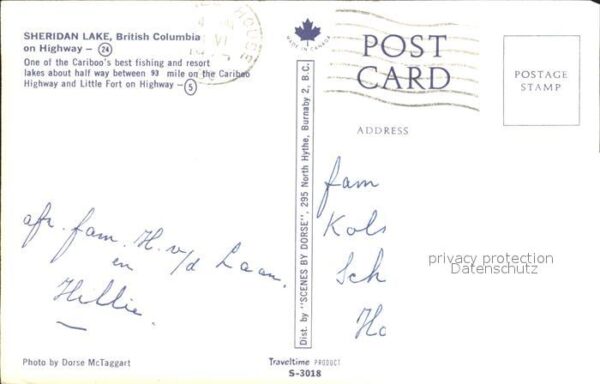 SHERIDAN LAKE, British Columbia
on Highway — 24
One of the Cariboo's best fishing and resort
lakes about half way between 93 mile on the Cariboo
Highway and Little Fort on Highway — 5
HOUSE
MADE IN CANADA
POST
CARD
POSTAGE
STAMP
ADDRESS
Dist. by "SCENES BY DORSE", 295 North Hythe, Burnaby 2, B.C.
afz. fam. H. v/d Laan.
en
Hillie.
fam
Kols
Sch
Ho
privacy protection
Datenschutz
Photo by Dorse McTaggart
Traveltime PRODUCT
S-3018